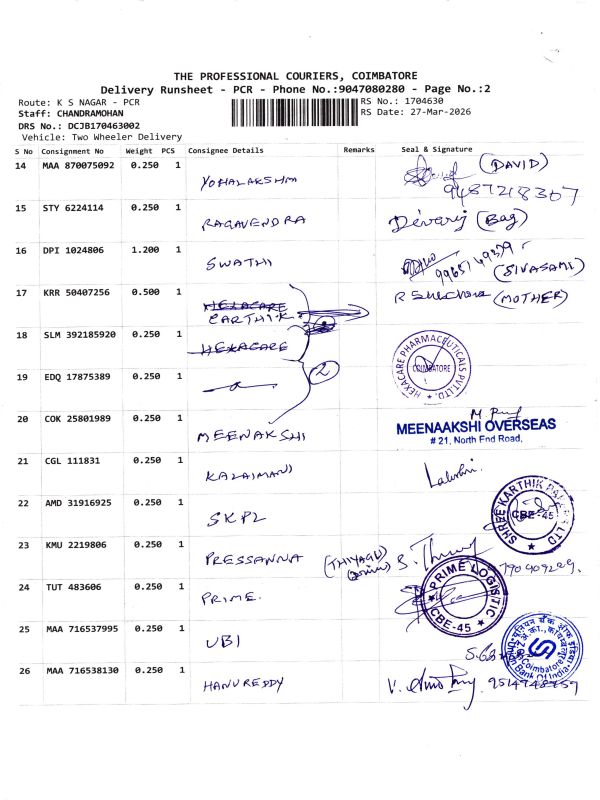 THE PROFESSIONAL COURIERS, COIMBATORE
Delivery Runsheet - PCR - Phone No.:9047080280 - Page No.:2
Route: K S NAGAR - PCR
RS No.: 1704630
Staff: CHANDRAMOHAN
RS Date: 27-Mar-2026
DRS No.: DCJB170463002
Vehicle: Two Wheeler Delivery
S No Consignment No Weight PCS Consignee Details Remarks Seal & Signature
14 MAA 870075092 0.250 1 YOHALAKSHMI (DAVID)
9487218307
15 STY 6224114 0.250 1 RAGAVENDRA Devaraj (Bag)
16 DPI 1024806 1.200 1 SWATHI (SIVASAMI)
17 KRR 50407256 0.500 1 HEXACARE (MOTHER)
CARTHIK
18 SLM 392185920 0.250 1 HEXACARE HEXACARE PHARMACEUTICALS PVT.LTD.
COIMBATORE
19 EDQ 17875389 0.250 1 2
20 COK 25801989 0.250 1 MEENAKSHI MEENAAKSHI OVERSEAS
# 21, North End Road,
21 CGL 111831 0.250 1 KALAIMANI Lakshmi.
22 AMD 31916925 0.250 1 SKPL SHREE KARTHIK
CBE-45
23 KMU 2219806 0.250 1 PRESSANNA (THIYAGU)
24 TUT 483606 0.250 1 PRIME. PRIME LOGISTIC
CBE-45
25 MAA 716537995 0.250 1 UBI
Coimbatore
Union Bank Of India
26 MAA 716538130 0.250 1 HANUREDDY 9514748759